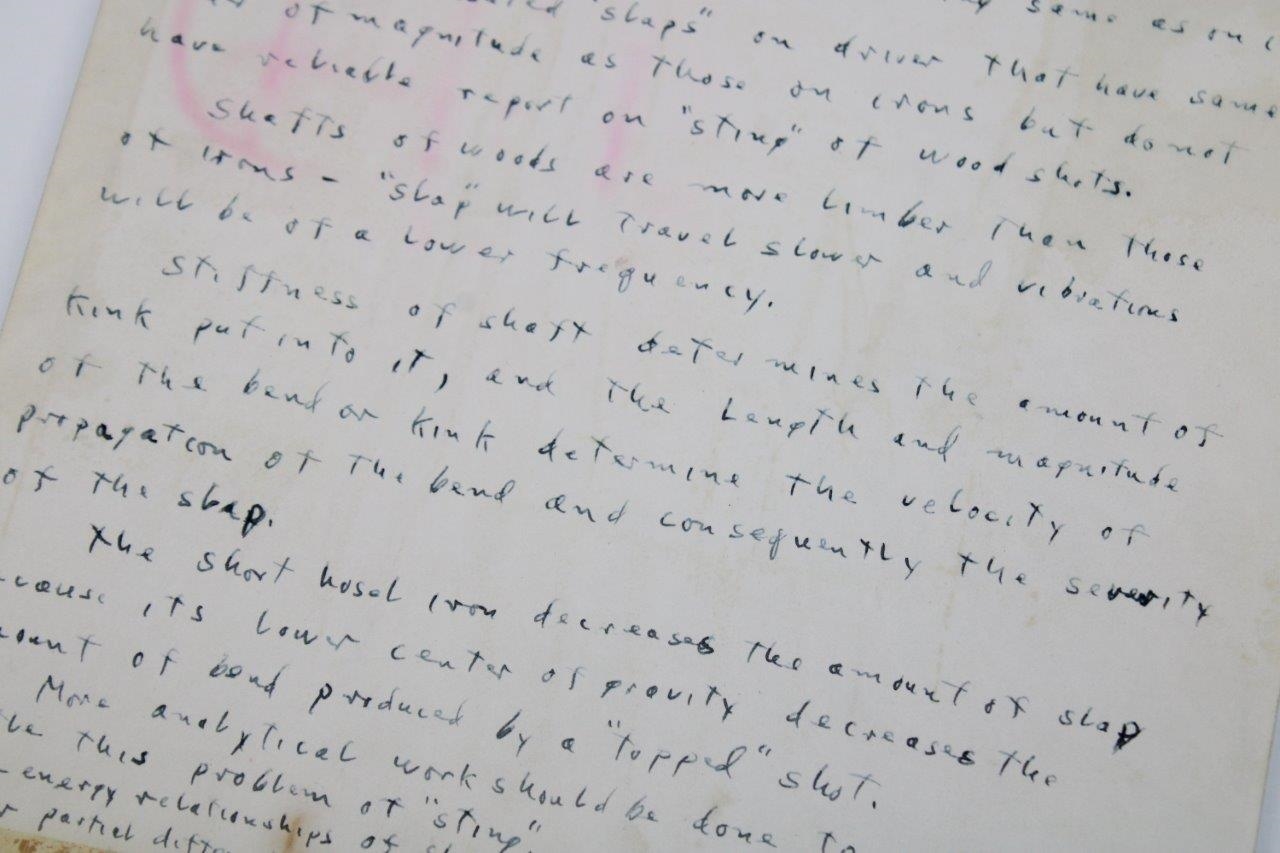 same as on
"slaps" on driver that have same
of magnitude as those on irons but do not
have reliable report on "sting" of wood shots.
Shafts of woods are more limber than those
of irons - "slap" will travel slower and vibrations
will be of a lower frequency.
Stiffness of shaft determines the amount of
kink put into it, and the length and magnitude
of the bend or kink determine the velocity of
propagation of the bend and consequently the severity
of the slap.
The short hosel iron decreases the amount of slap
-cause its lower center of gravity decreases the
of bend produced by a "topped" shot.
More analytical work should be done to
this problem of "sting"
-energy relationships of
partial